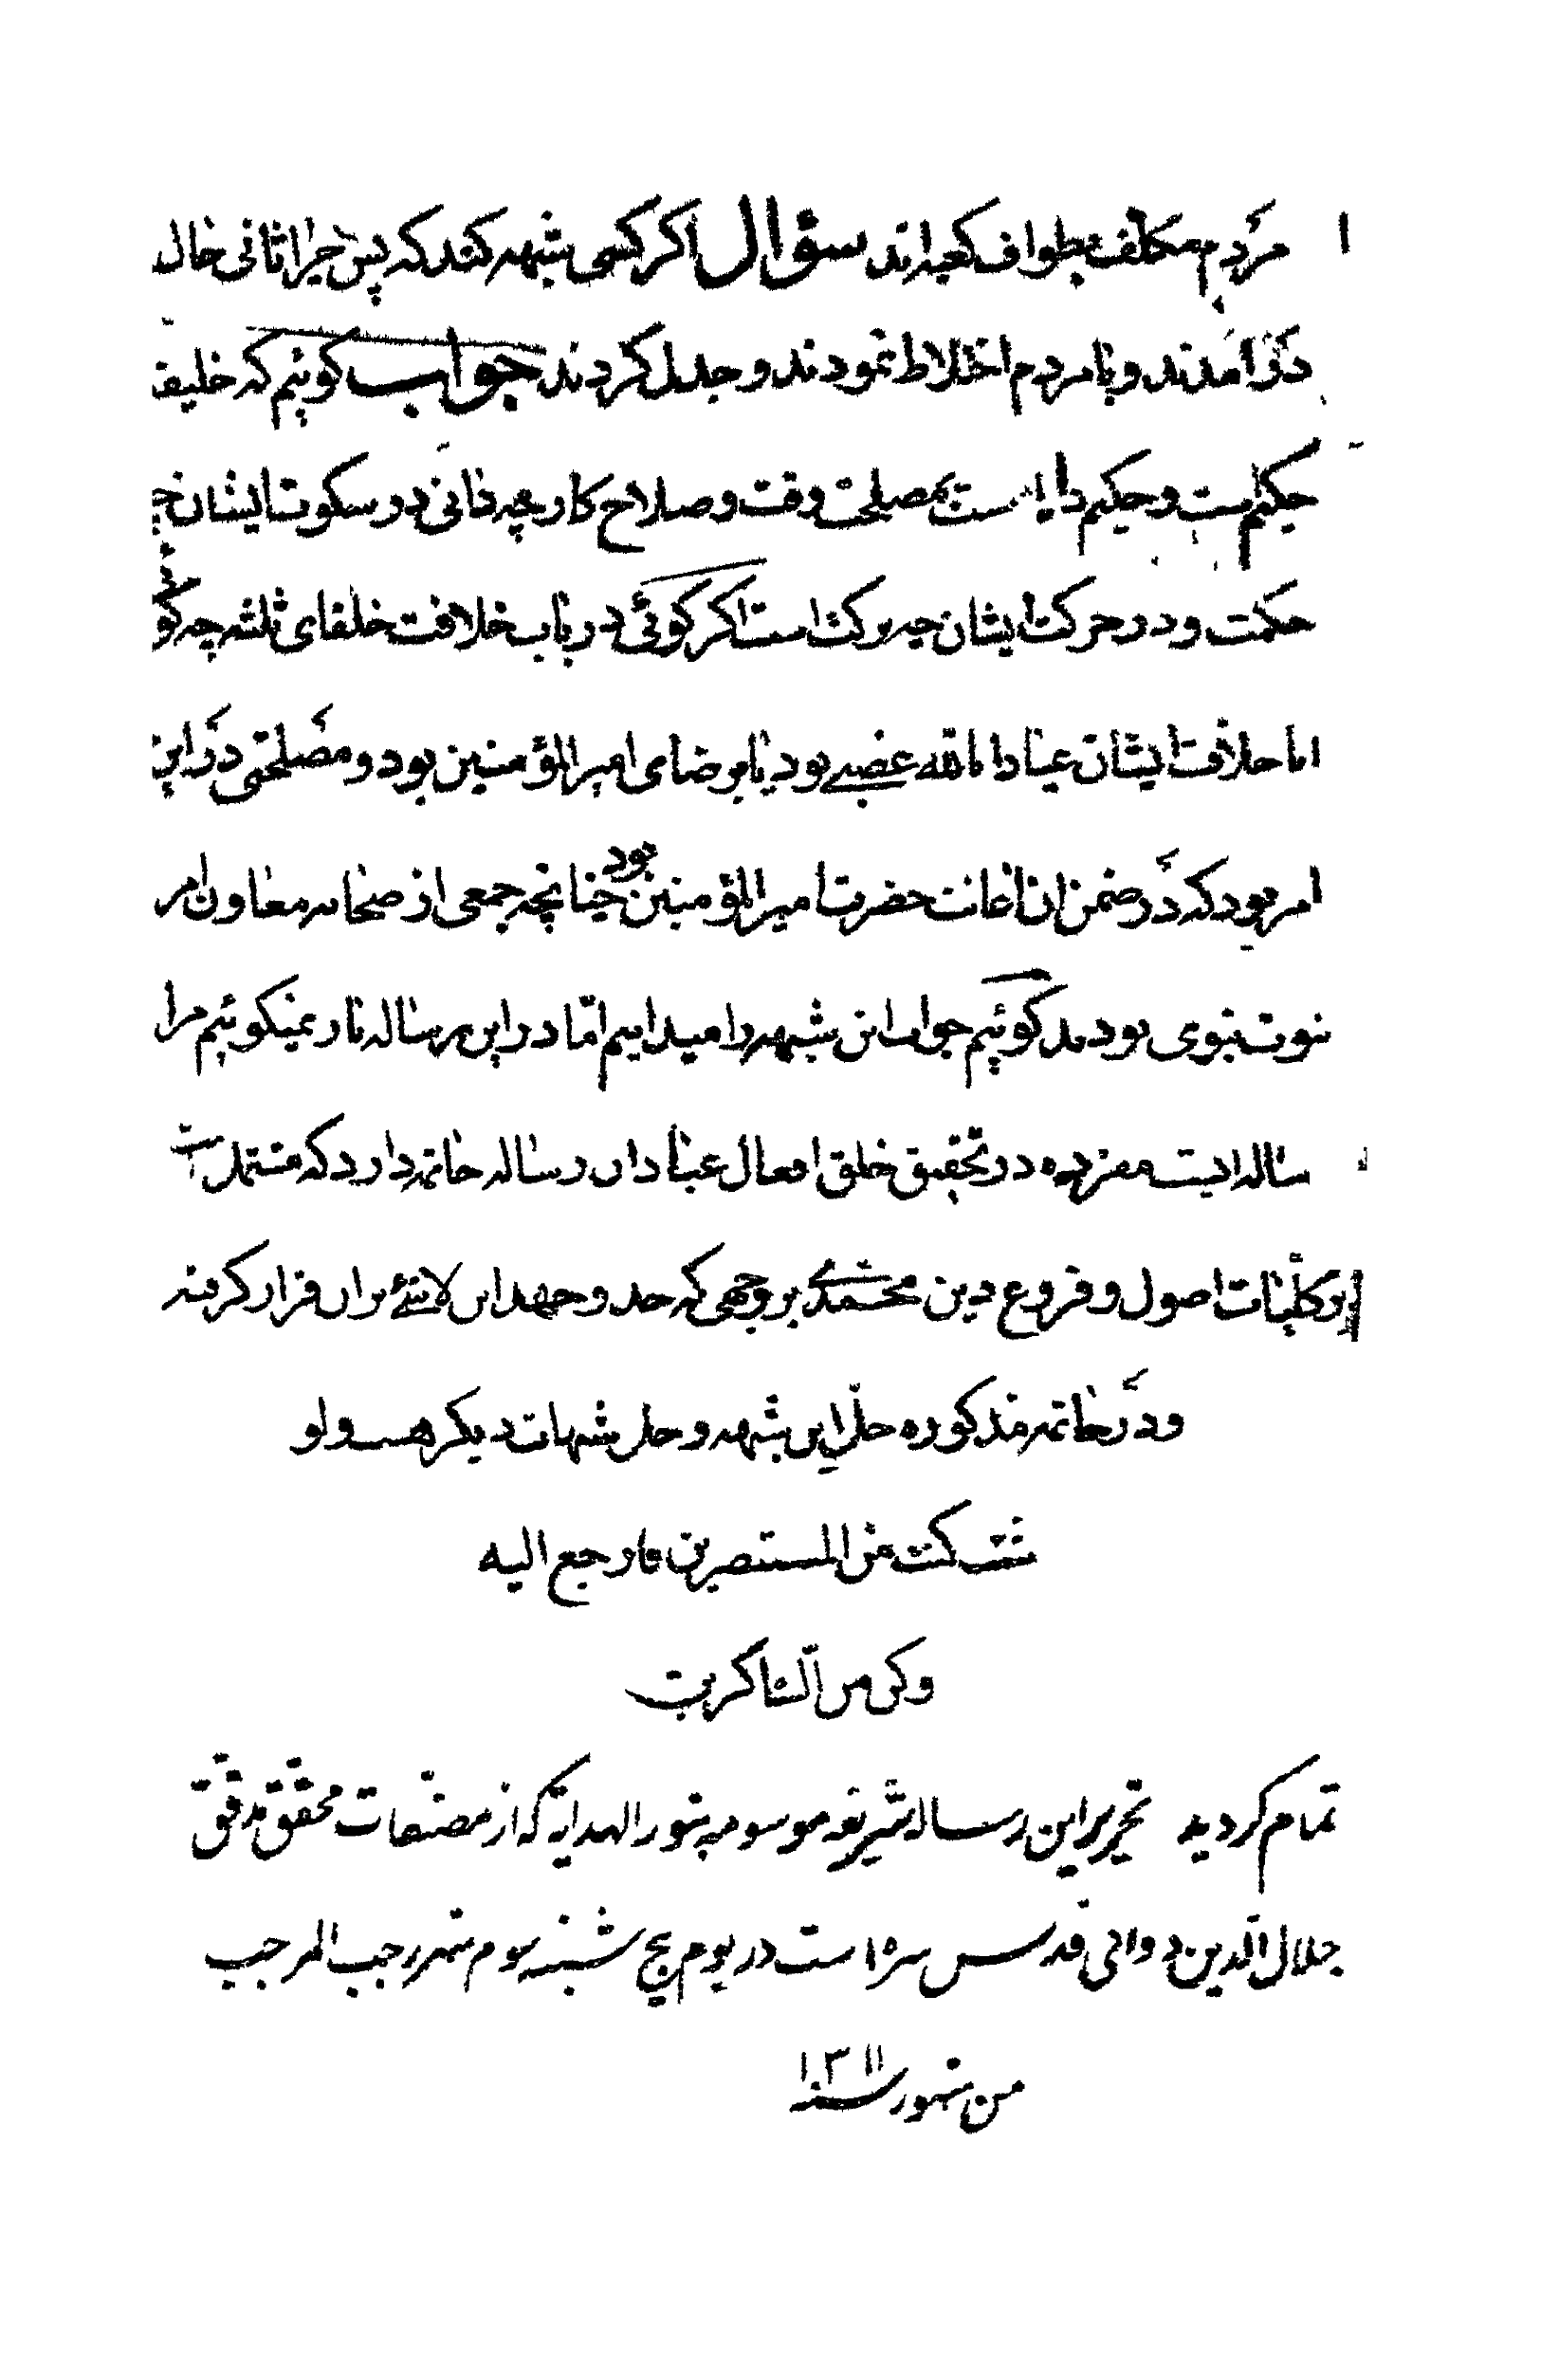 مردم مکلف بطواف کعبه‌اند سؤال اکر کسی شبهه کند که پس چرا ثانی خال
در آمدند و با مردم اختلاط نمودند و جدل کردند جواب کوئیم که خلیفه
حکیم است و حکیم دانا است بمصلحت وقت و صلاح کار چه دانی در سکوت ایشان چه
حکمت و در حرکت ایشان چه برکت است اکر کوئی در باب خلافت خلفای ثلثه چه کوئی
اما خلافت ایشان عیاذا بالله غصبی بود یا برضای امیرالمؤمنین بود و مصلحتی در این
امر بود که در ضمن ان اعانت حضرت امیرالمؤمنین بود چنانچه جمعی از صحابه معاون امر
نبوت نبوی بودند کوئیم جواب این شبهه را میدانیم اما در این رساله باز نمیکوئیم مرا
رساله ایست مفرده در تحقیق خلق افعال عباد ان رساله خاتمه دارد که مشتمل است
بر کلیات اصول و فروع دین محمدی بر وجهی که جد و جهد این لاشئ بران قرار کرفته
و در خاتمه مذکوره حل این شبهه و حل شبهات دیکر هست ولو
شئت کنت من المستبصرین فارجع الیه
وکن من الشاکرین
تمام کردید تحریر این رساله شریفه موسومه بنور الهدایه که از مصنفات محقق مدقق
جلال الدین دوانی قدس سره است در یوم پنج شنبه سوم شهر رجب المرجب
من شهور سنه ۱۳۱۱